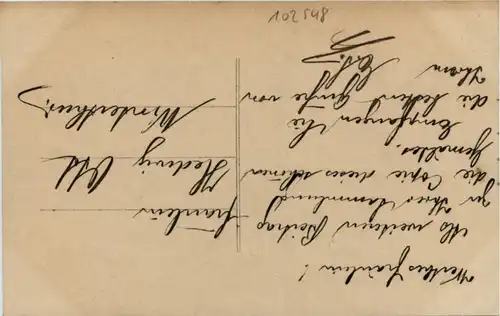 102548
Wertes Fräulein!
Als weiteren Beitrag
zu Ihrer Sammlung
die Copie dieses schönen
Gemäldes.
Empfangen Sie
die besten Grüsse von
Ihrem
Fräulein
Hedwig Ott
Winterthur